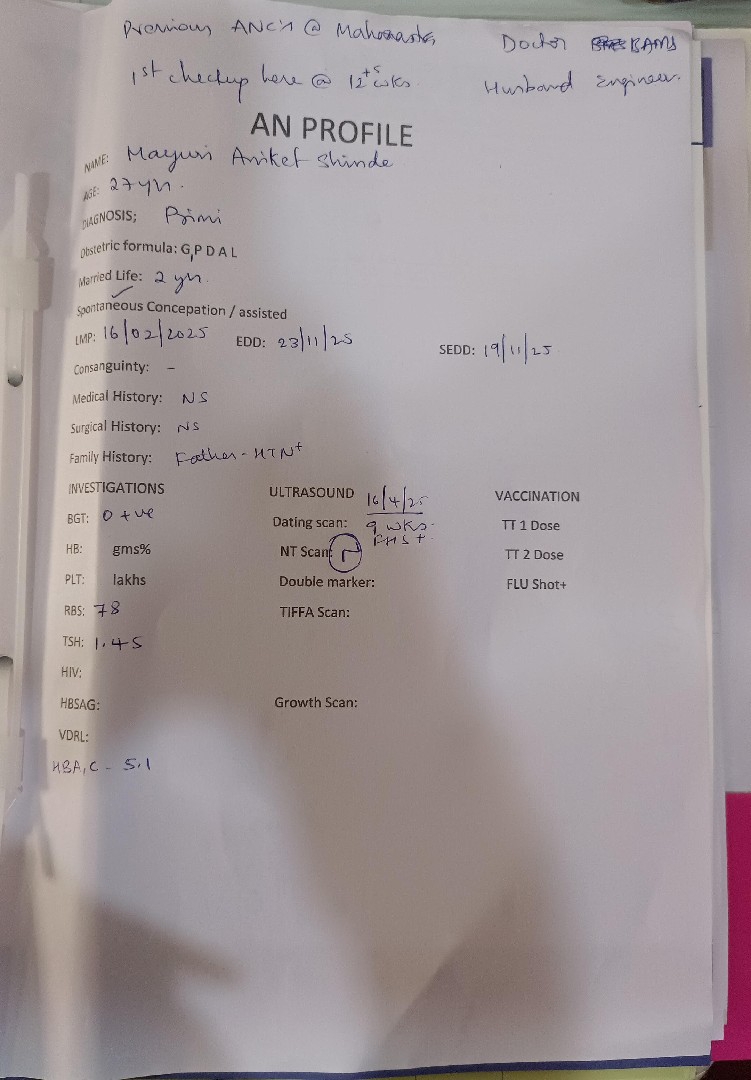 Previous ANC's @ Maharastra Doctor BAMS
1st checkup here @ 12+5 wks. Husband Engineer.
AN PROFILE
NAME: Mayuri Aniket Shinde
AGE: 27 yr.
DIAGNOSIS; Primi
Obstetric formula: G,P D A L
Married Life: 2 yr.
Spontaneous Concepation / assisted
LMP: 16/02/2025 EDD: 23/11/25 SEDD: 19/11/25
Consanguinty: -
Medical History: NS
Surgical History: NS
Family History: Father - HTN+
INVESTIGATIONS ULTRASOUND 16/4/25 VACCINATION
BGT: O +ve Dating scan: 9 wks. TT 1 Dose
FHS +
HB: gms% NT Scan: TT 2 Dose
PLT: lakhs Double marker: FLU Shot+
RBS: 78 TIFFA Scan:
TSH: 1.45
HIV:
HBSAG: Growth Scan:
VDRL:
HBA1C - 5.1